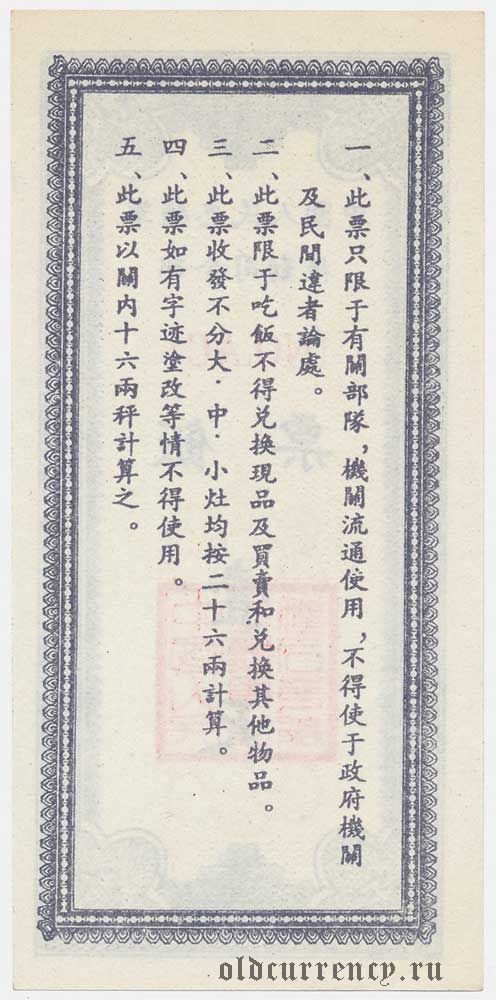 一、此票只限于有關部隊，機關流通使用，不得使于政府機關
及民間違者論處。
二、此票限于吃飯不得兑換現品及買賣和兑換其他物品。
三、此票收發不分大．中．小灶均按二十六兩計算。
四、此票如有字迹塗改等情不得使用。
五、此票以關内十六兩秤計算之。
oldcurrency.ru